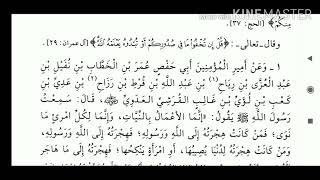 Made with KINEMASTER
مِنكُمْ﴾ [الحج: ٣٧].
وقال ـ تعالى ـ: ﴿قُلْ إِن تُخْفُوا مَا فِي صُدُورِكُمْ أَوْ تُبْدُوهُ يَعْلَمْهُ اللَّهُ﴾ [آل عمران: ٢٩].
١ ـ وَعَنْ أَمِيرِ الْمُؤْمِنِينَ أَبِي حَفْصٍ عُمَرَ بْنِ الْخَطَّابِ بْنِ نُفَيْلِ بْنِ
عَبْدِ الْعُزَّى بْنِ رِيَاحِ بْنِ عَبْدِ اللَّهِ بْنِ قُرْطِ بْنِ رَزَاحِ بْنِ عَدِيِّ بْنِ
كَعْبِ بْنِ لُؤَيِّ بْنِ غَالِبٍ الْقُرَشِيِّ الْعَدَوِيِّ قَالَ: سَمِعْتُ
رَسُولَ اللَّهِ ﷺ يَقُولُ: «إِنَّمَا الأَعْمَالُ بِالنِّيَّاتِ، وَإِنَّمَا لِكُلِّ امْرِئٍ مَا
نَوَى؛ فَمَنْ كَانَتْ هِجْرَتُهُ إِلَى اللَّهِ وَرَسُولِهِ؛ فَهِجْرَتُهُ إِلَى اللَّهِ وَرَسُولِهِ،
وَمَنْ كَانَتْ هِجْرَتُهُ لِدُنْيَا يُصِيبُهَا، أَوِ امْرَأَةٍ يَنْكِحُهَا؛ فَهِجْرَتُهُ إِلَى مَا هَاجَرَ